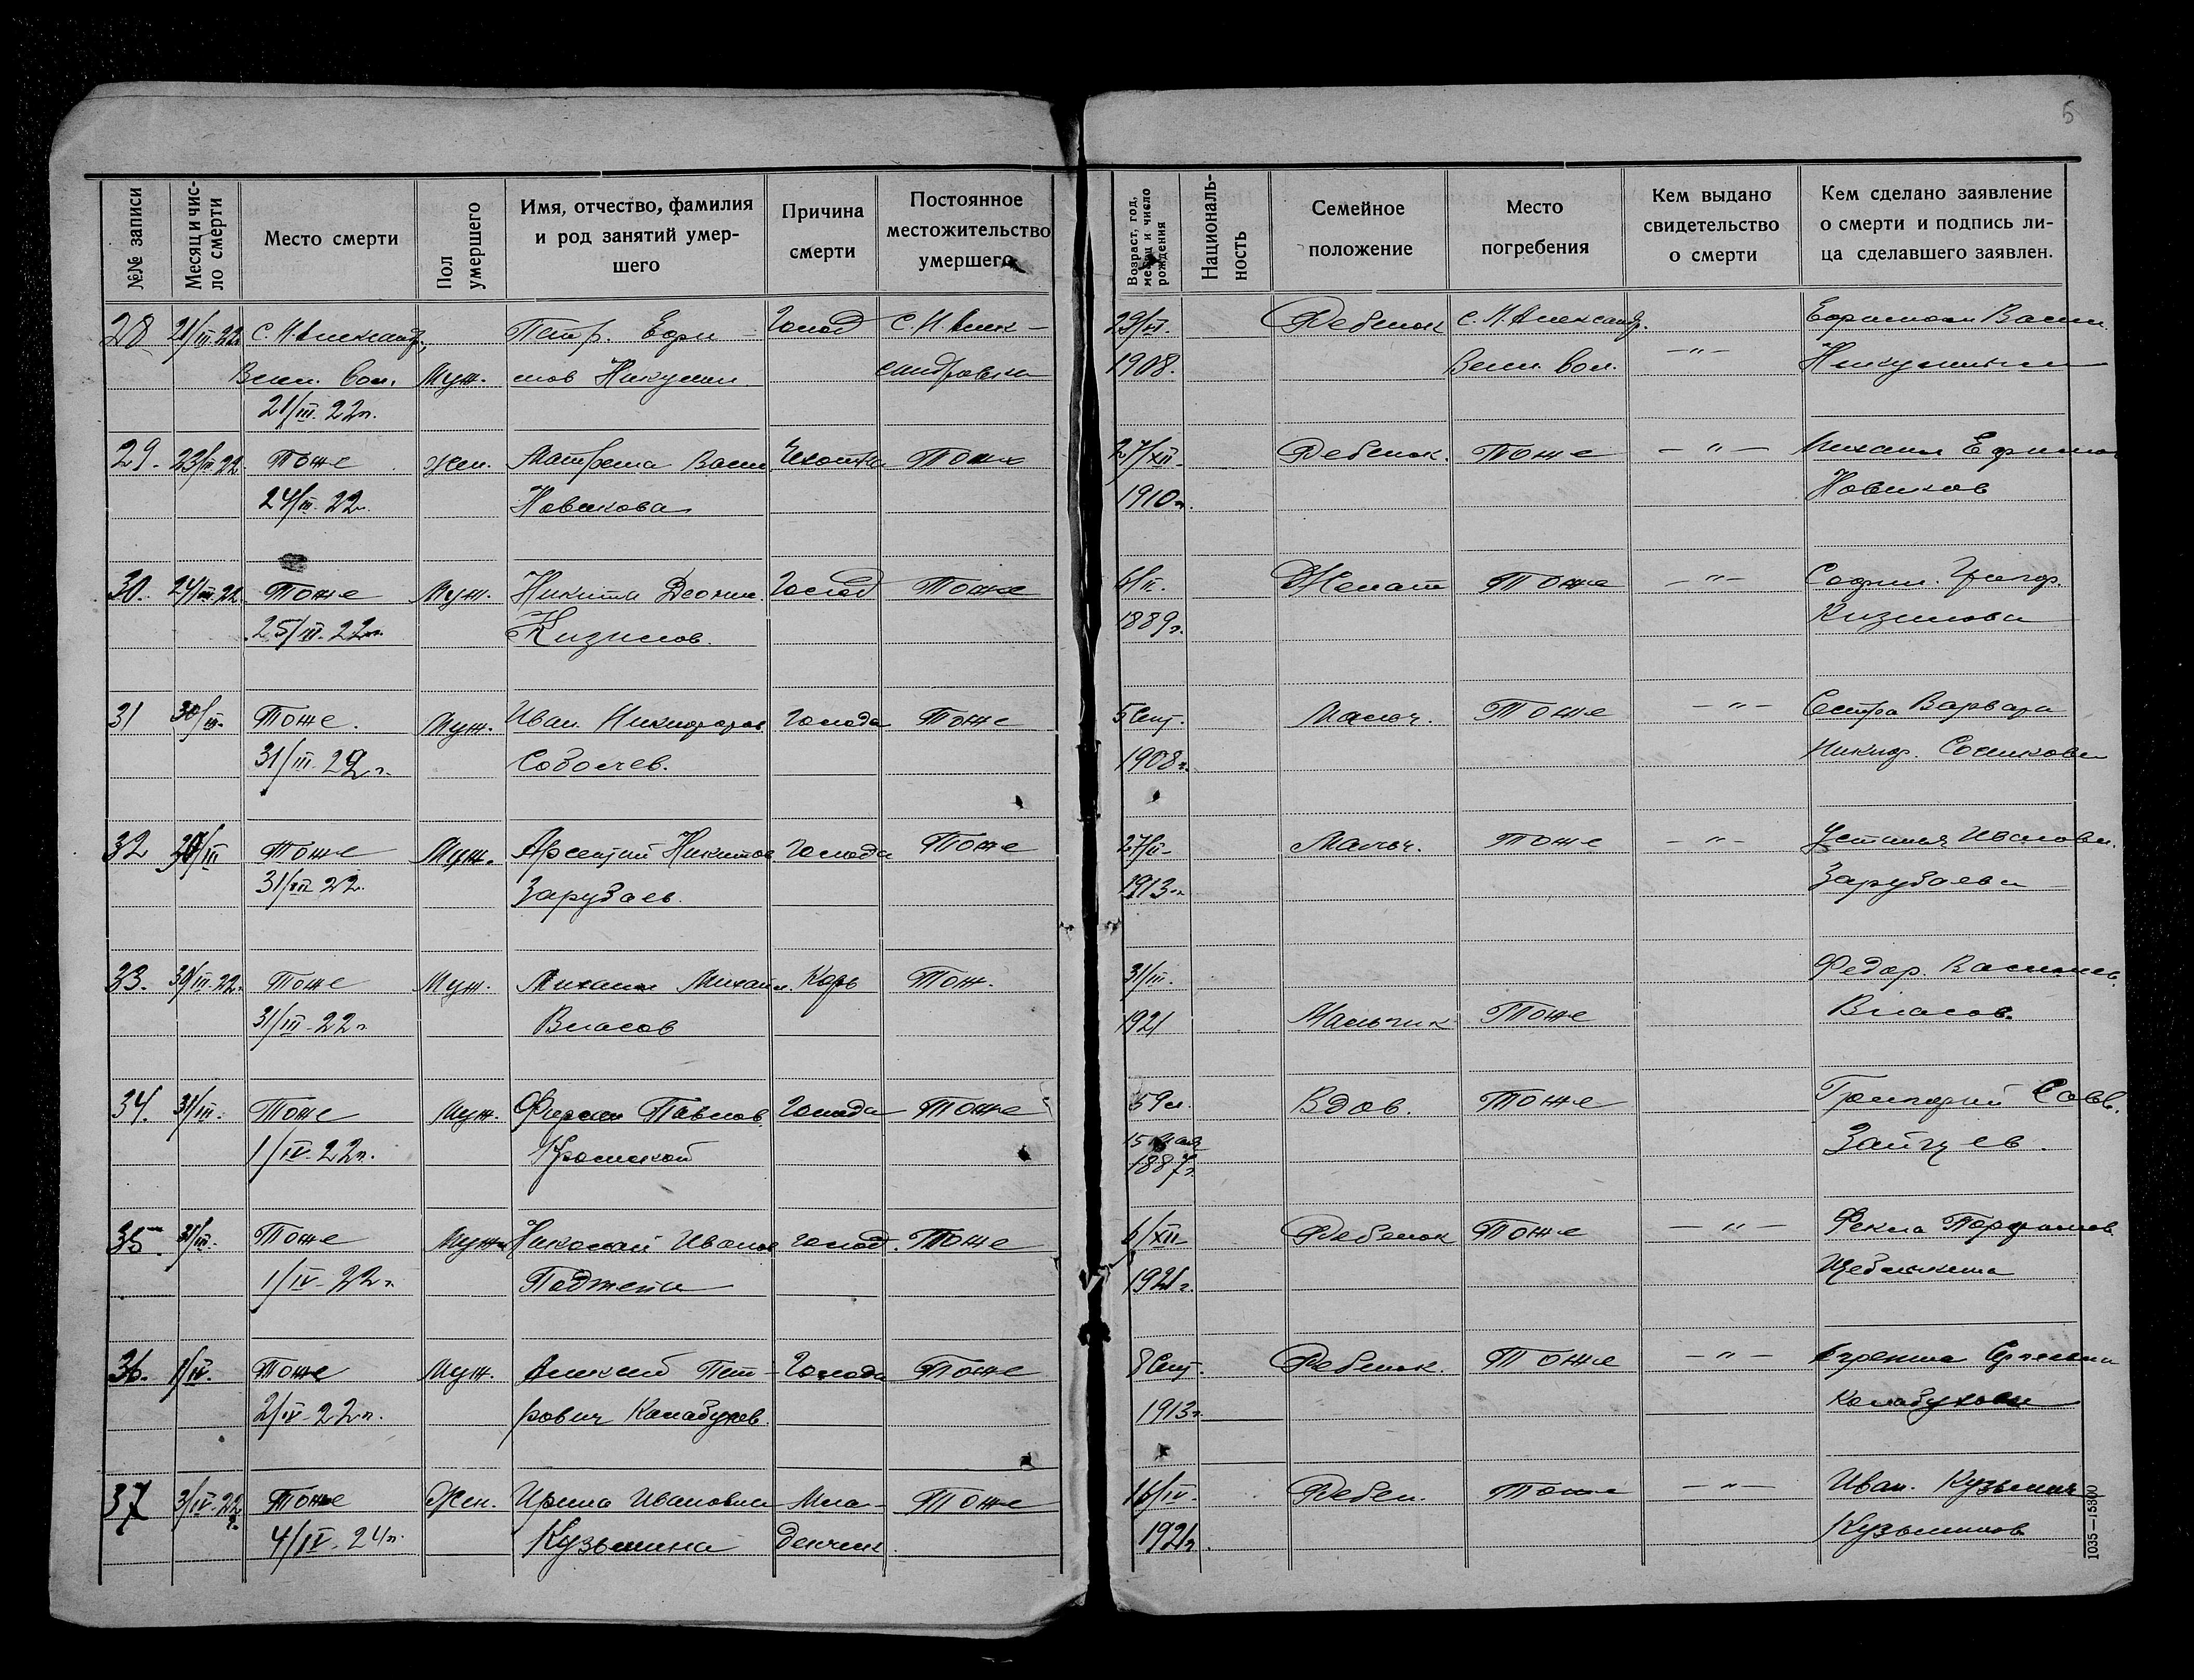 5
№№ записи
Месяц и чис-
ло смерти
Место смерти
Пол
умершего
Имя, отчество, фамилия
и род занятий умер-
шего
Причина
смерти
Постоянное
местожительство
умершего
Возраст, год,
месяц и число
рождения
Националь-
ность
Семейное
положение
Место
погребения
Кем выдано
свидетельство
о смерти
Кем сделано заявление
о смерти и подпись ли-
ца сделавшего заявлен.
28 21/III 22 С. Н. Александр. Петр. Ефи- Голод С. Н. Алек- 29/VI. Ребенок С. Н. Александр. Ефимом Васил
Вол. Муж. мов Никулин сандровка 1908. Вол. -"- Никулиным
21/III. 22г.
29. 23/III 22. Тоже жен. Матрена Васил Чахотка Тоже 27/XII Ребенок. Тоже -"- Михаил Ефимов
24/III. 22г. Новикова 1910г. Новиков
30. 24/III 22. Тоже Муж. Никита Голод Тоже 6/II. Женат Тоже -"- Григор.
25/III. 22г. Кизилов. 1889г. Кизилова
31 30/III. Тоже. Муж. Иван Никифоров Голода Тоже 5 Сент. Мальч. Тоже -"- Сестра Варвара
31/III. 22г. Соболев. 1908г. Никиф.
32 30/III Тоже Муж. Арсентий Никитов Голода Тоже 27/II Мальч. Тоже -"- Устинья Иванова.
31/III 22. Зарубаев. 1913г. Зарубаева
33. 30/III 22. Тоже Муж. Михаил Михаил. Корь Тож. 31/III. Федор. Васильев.
31/III. 22г Власов 1921 Мальчик Тоже Власов.
34. 31/III. Тоже Муж. Павлов Голода Тоже 59л. Вдов. Тоже Григорий Савв.
1/IV. 22г. 15 мая Зайцев.
1887г.
35. 31/III. Тоже Муж. Николай Иванов голод. Тоже 6/XII Ребенок Тоже -"- Фекла Парфенов.
1/IV. 22г. 1921г.
36. 1/IV. Тоже Муж. Алексей Пет- Голода Тоже 8 Сент. Ребенок. Тоже -"-
2/IV. 22г. рович Калабухов 1913г. Калабухова
37 3/IV. 22г. Тоже Жен. Ирина Ивановна Мла- Тоже 16/IV. Ребен. Тоже -"- Иван. Кузьмич
4/IV. 24г. Кузьмина денчик. 1921г. Кузьминов
1035—15300